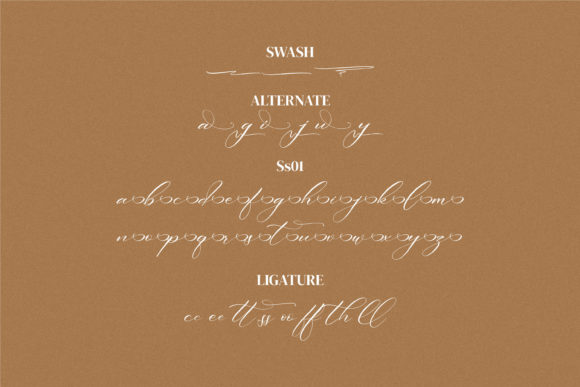 SWASH
ALTERNATE
a g i j w y
Ss01
a b c d e f g h i j k l m
n o p q r s t u v w x y z
LIGATURE
cc ee tt ss oi ff th ll